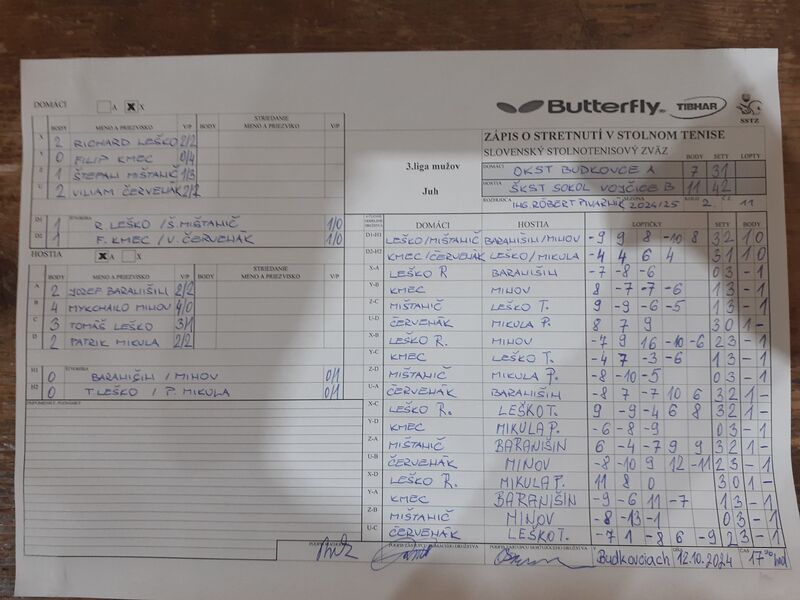 Butterfly
TIBHAR
SSTZ
ZÁPIS O STRETNUTÍ V STOLNOM TENISE
SLOVENSKÝ STOLNOTENISOVÝ ZVÄZ
3.liga mužov
Juh
BODY SETY LOPTY
DOMÁCI OKST BUDKOVCE A 7 31
HOSTIA ŠKST SOKOL VOJČICE B 11 42
ROZHODCA ING. RÓBERT PIVARNÍK 2024/25 KOLO 2 11
DOMÁCI A X
BODY MENO A PRIEZVISKO V/P BODY STRIEDANIE MENO A PRIEZVISKO V/P
X 2 RICHARD LEŠKO 2/2
Y 0 FILIP KMEC 0/4
Z 1 ŠTEPÁN MIŠTANIČ 1/3
U 2 VILIAM ČERVEŇÁK 2/2
D1 1 ŠTVORHRA R. LEŠKO / Š. MIŠTANIČ 1/0
D2 1 F. KMEC / V. ČERVEŇÁK 1/0
HOSTIA A X
BODY MENO A PRIEZVISKO V/P BODY STRIEDANIE MENO A PRIEZVISKO V/P
A 2 JOZEF BARANIŠIN 2/2
B 4 MYKCHAILO MINOV 4/0
C 3 TOMÁŠ LEŠKO 3/1
D 2 PATRIK MIKULA 2/2
H1 0 ŠTVORHRA BARANIŠIN / MINOV 0/1
H2 0 T. LEŠKO / P. MIKULA 0/1
DOMÁCI HOSTIA LOPTIČKY SETY BODY
D1-H1 LEŠKO/MIŠTANIČ BARANIŠIN/MINOV -9 9 8 -10 8 3 2 1 0
D2-H2 KMEC/ČERVEŇÁK LEŠKO/MIKULA -4 4 6 4 3 1 1 0
X-A LEŠKO R BARANIŠIN -7 -8 -6 0 3 - 1
Y-B KMEC MINOV 8 -7 -7 -6 1 3 - 1
Z-C MIŠTANIČ LEŠKO T. 9 -9 -6 -5 1 3 - 1
U-D ČERVEŇÁK MIKULA P. 8 7 9 3 0 1 -
X-B LEŠKO R. MINOV -7 9 16 -10 -6 2 3 - 1
Y-C KMEC LEŠKO T. -4 7 -3 -6 1 3 - 1
Z-D MIŠTANIČ MIKULA P. -8 -10 -5 0 3 - 1
U-A ČERVEŇÁK BARANIŠIN -8 7 -7 10 6 3 2 1 -
X-C LEŠKO R. LEŠKO T. 9 -9 -4 6 8 3 2 1 -
Y-D KMEC MIKULA P. -6 -8 -9 0 3 - 1
Z-A MIŠTANIČ BARANIŠIN 6 -4 -7 9 9 3 2 1 -
U-B ČERVEŇÁK MINOV -8 -10 9 12 -11 2 3 - 1
X-D LEŠKO R. MIKULA P. 11 8 0 3 0 1 -
Y-A KMEC BARANIŠIN -9 -6 11 -7 1 3 - 1
Z-B MIŠTANIČ MINOV -8 -13 -1 0 3 - 1
U-C ČERVEŇÁK LEŠKO T. -7 1 -8 6 -9 2 3 - 1
V Budkovciach DŇA 12.10.2024 ČAS 17 30 hod